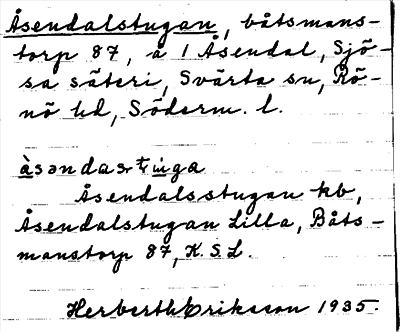 Åsendalstugan, båtsmans-
torp 87, å 1 Åsendal, Sjö-
sa säteri, Svärta sn, Rö-
nö hd, Söderm. l.
åsəndastɯga
Åsendalsstugan kb,
Åsendalstugan Lilla, Båts-
manstorp 87, K.S.L.
Herberth Eriksson 1935.